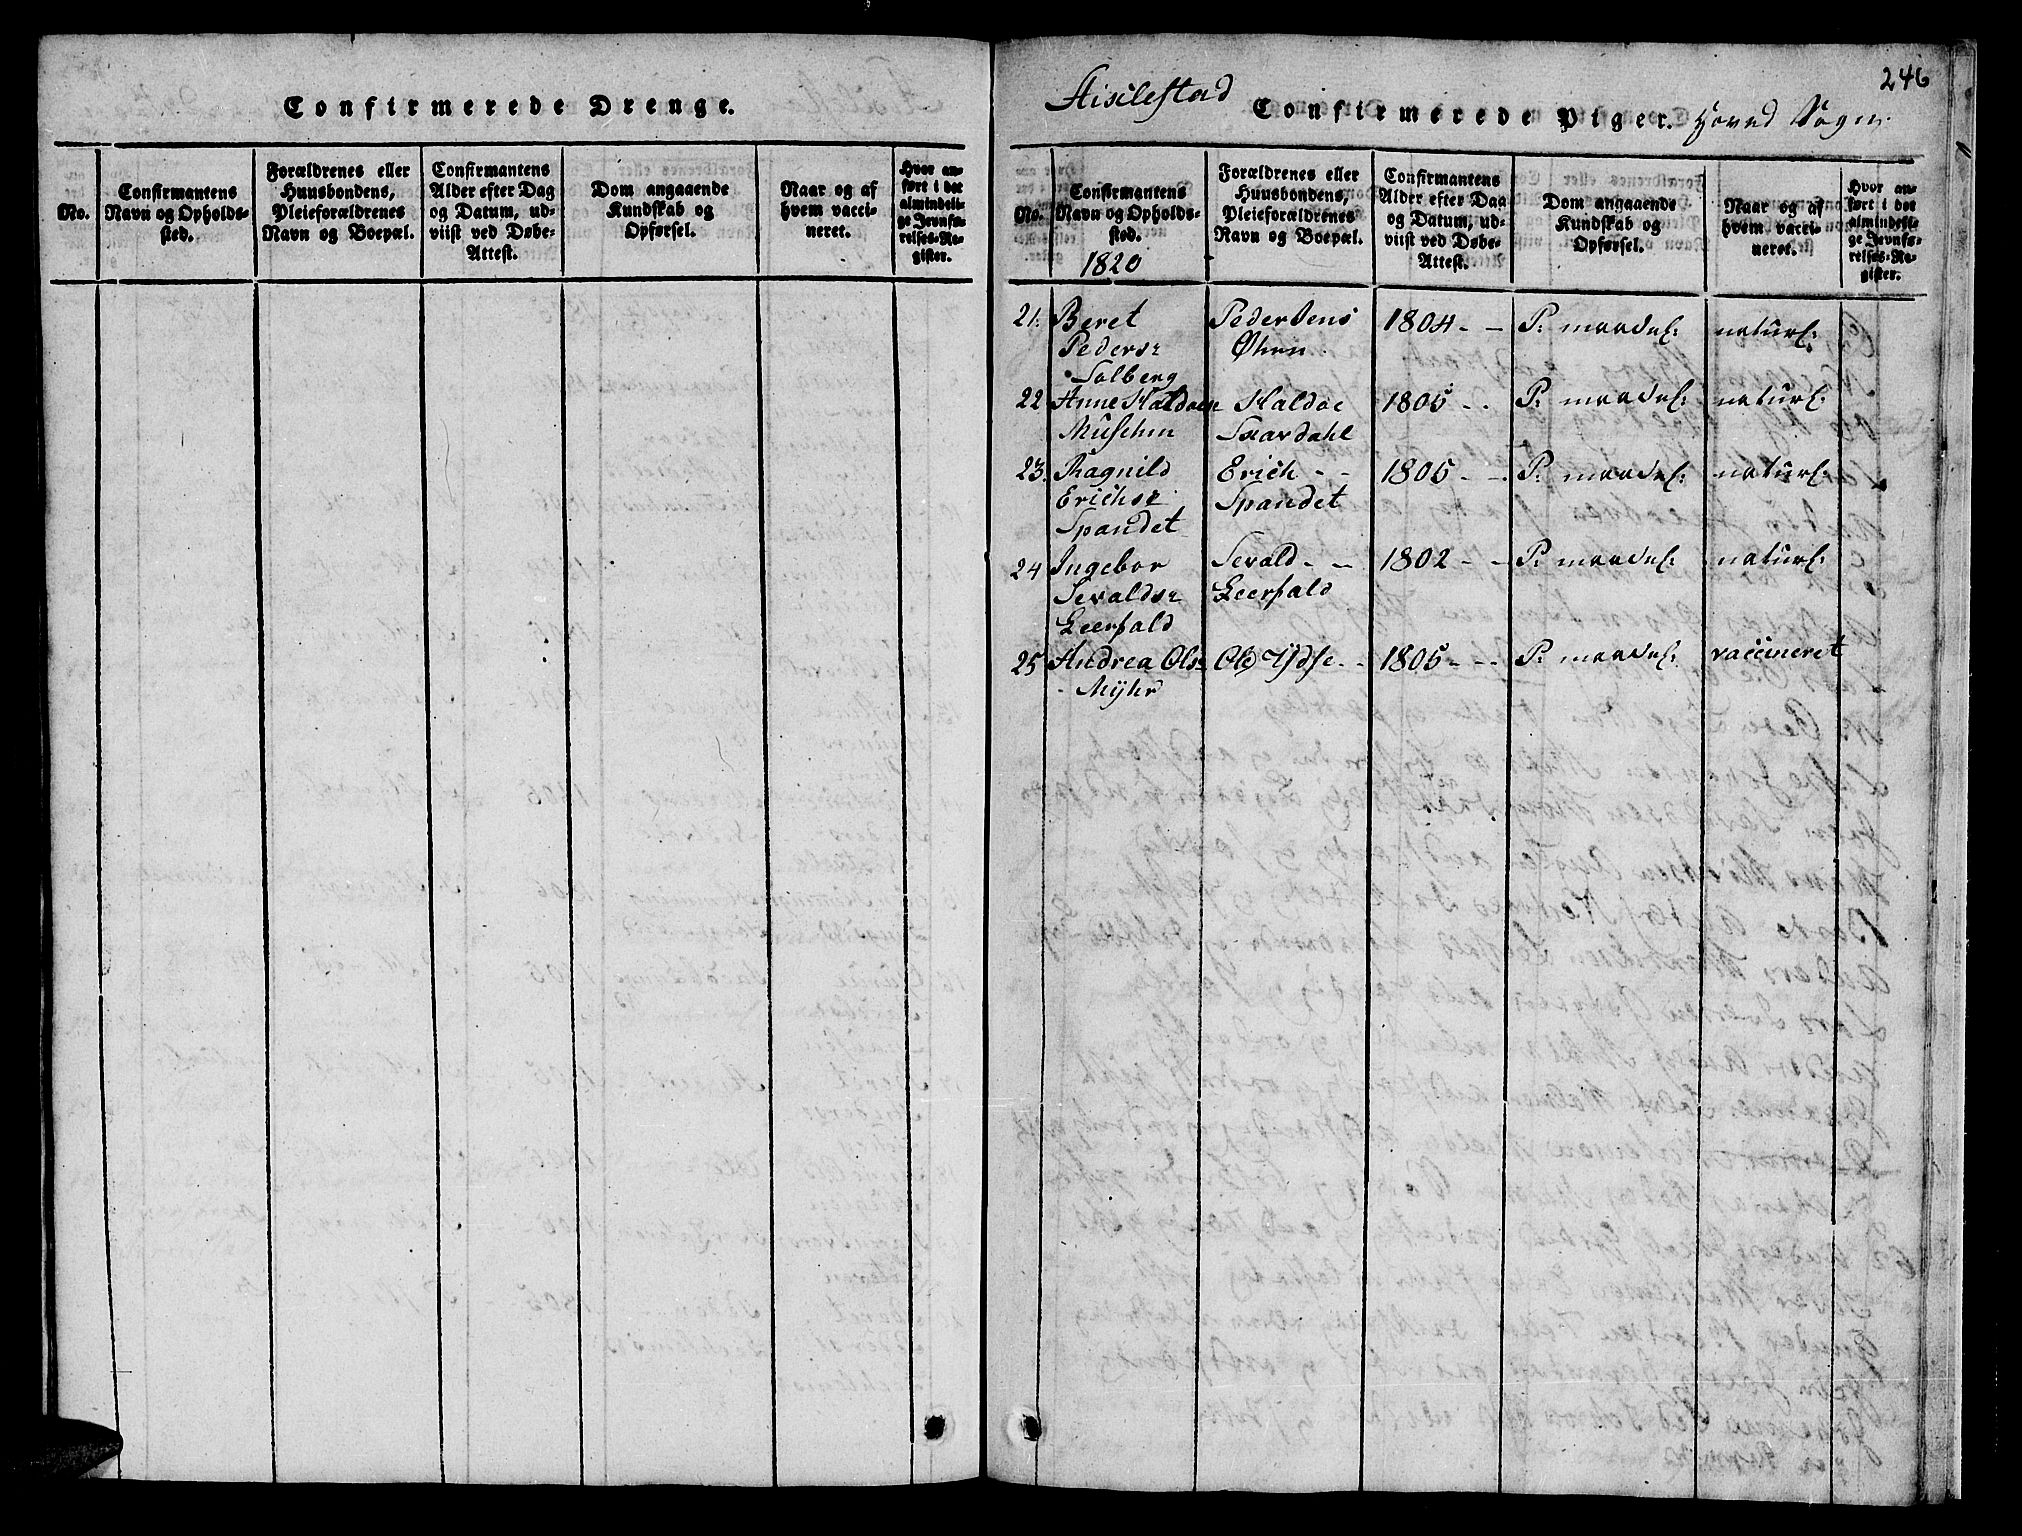 Confirmerede Drenge.
No.
Confirmantens
Navn og Opholds-
sted.
Forældrenes eller
Huusbondens,
Pleieforældrenes
Navn og Boepæl.
Confirmantens
Alder efter Dag
og Datum, ud-
viist ved Døbe-
Attest.
Dom angaaende
Kundskab og
Opførsel.
Naar og af
hvem vacci-
neret.
Hvor an-
ført i det
almindeli-
ge Jevnfø-
relses-Re-
gister.
246
Confirmerede Piger. Hoved Sogn.
No.
Confirmantens
Navn og Opholds-
sted.
1820
Forældrenes eller
Huusbondens,
Pleieforældrenes
Navn og Boepæl.
Confirmantens
Alder efter Dag
og Datum, ud-
viist ved Døbe-
Attest.
Dom angaaende
Kundskab og
Opførsel.
Naar og af
hvem vacci-
neret.
Hvor an-
ført i det
almindeli-
ge Jevnfø-
relses-Re-
gister.
21. Beret Peder Jens 1804 - - P: maadel: naturl:
Pedersr Øhrn
Solberg
22 Anne Haldoer Haldoe 1805 - - P: maadel: naturl:
Skardahl
23. Ragnild Erich - - 1805 - - P: maadel: naturl:
Erichsr Spandet
Spandet
24 Ingebor Sevald - - 1802 - - P: maadel: naturl:
Sevaldsr Leerfald
Leerfald
25 Andrea Olsr Ole Ydse - - 1805 - - P: maadel: vaccineret
Myhr